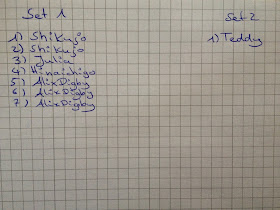 Set 1
1) Shikujo
2) Shikujo
3) Julia
4) Hinaichigo
5) AlixDigby
6) AlixDigby
7) AlixDigby
Set 2
1) Teddy